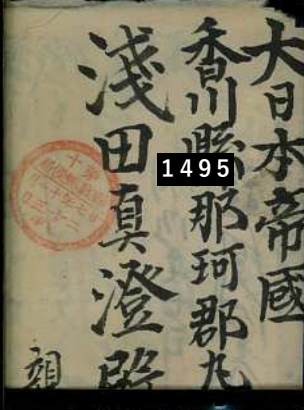 大日本帝國
香川縣那珂郡丸
淺田真澄殿
親
1495